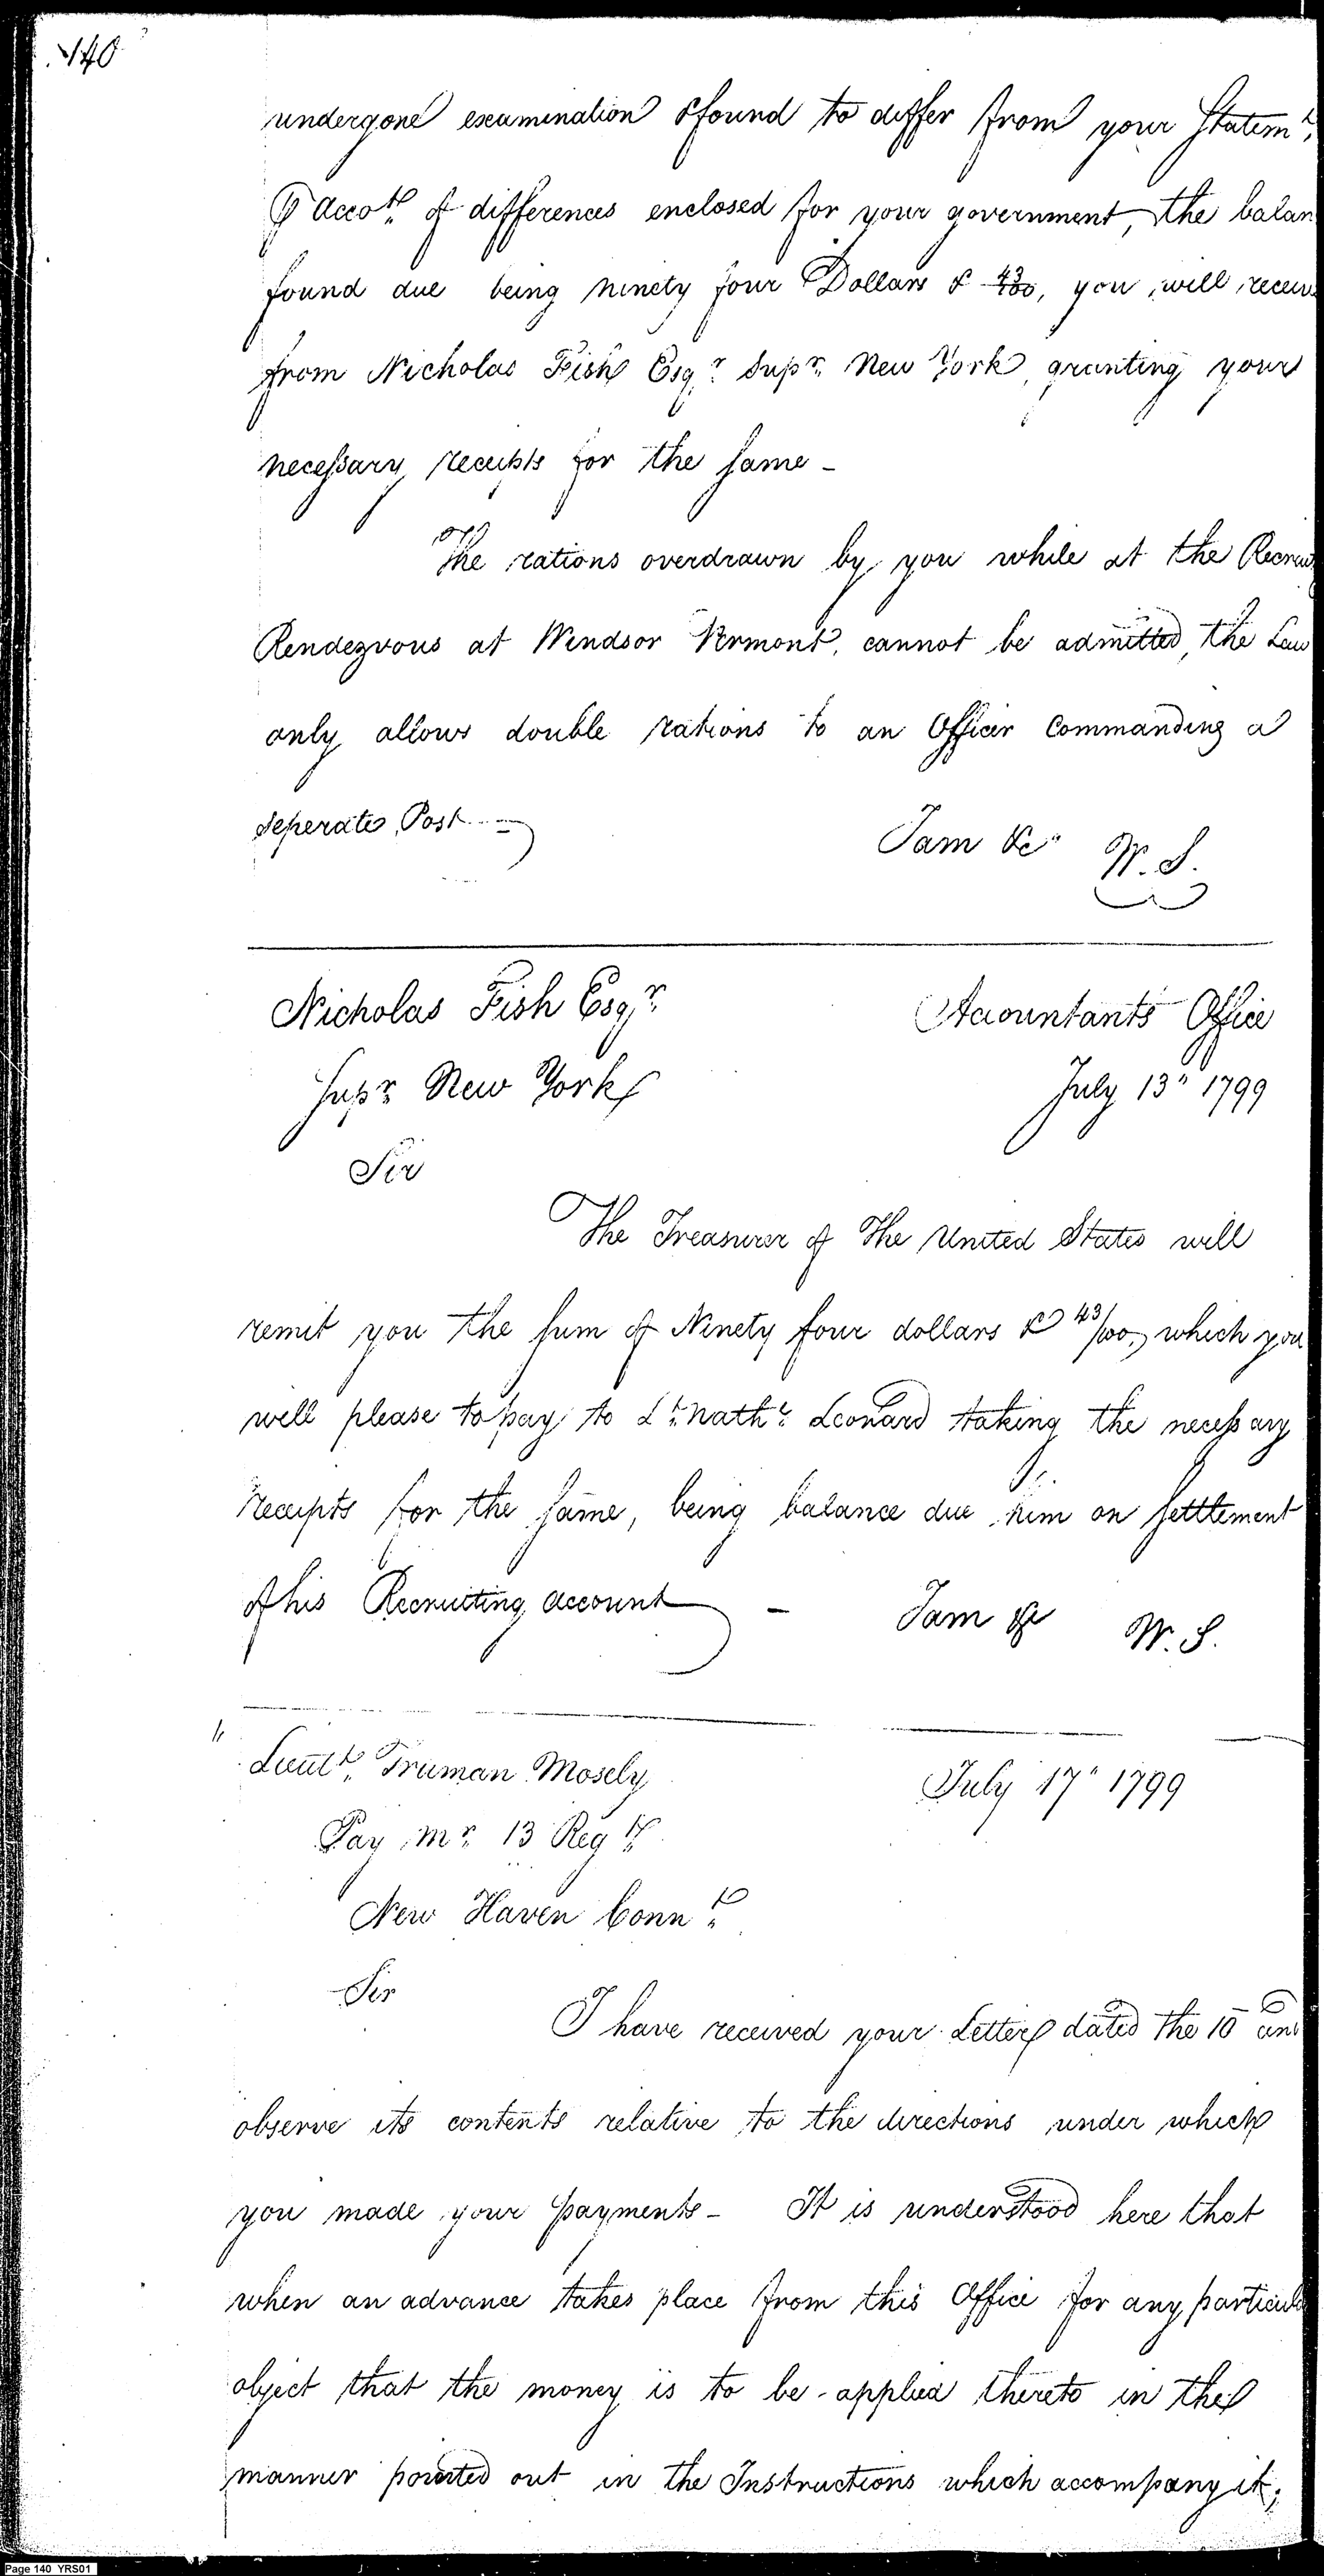 140
undergone examination & found to differ from your Statemt.
⅌ Accot. of differences enclosed for your government, the balan
found due being ninety four Dollars & 43/100, you will receive
from Nicholas Fish Esqr. Supr. New York, granting your
necessary receipts for the same -
The rations overdrawn by you while at the Recruit
Rendezvous at Windsor Vermont, cannot be admitted, the Law
only allows double rations to an Officer Commanding a
seperate Post -
I am &c W. S.
Nicholas Fish Esqr. Accountants Office
Supr. New York July 13" 1799
Sir
The Treasurer of The United States will
remit you the sum of Ninety four dollars & 43/100, which you
will please to pay to Lt. Nathl. Leonard taking the necessary
receipts for the same, being balance due him on setttlement
of his Recruiting account - I am &c W. S.
Lieutt. Truman Mosely July 17" 1799
Pay Mr. 13 Regt.
New Haven Connt.
Sir
I have received your Letter dated the 10 and
observe its contents relative to the directions under which
you made your payments - It is understood here that
when an advance takes place from this Office for any particula
object that the money is to be applied thereto in the
manner pointed out in the Instructions which accompany it;
Page 140 YRS01